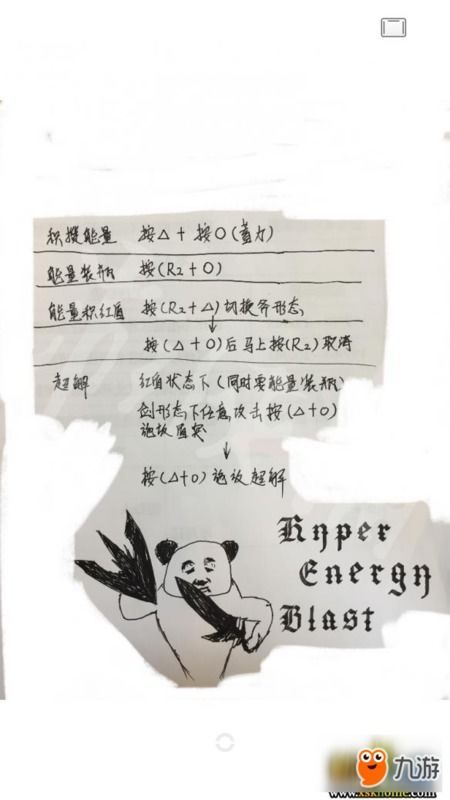 积攒能量 按△+按O(蓄力)
能量装瓶 按(R2+O)
能量积红盾 按(R2+△)切换斧形态
↓
按(△+O)后马上按(R2)取消
超解 红盾状态下(同时要能量装瓶)
剑形态下任意攻击按(△+O)
施放盾突
↓
按(△+O)施放超解
Hyper
Energy
Blast
九游
www.xskhome.com